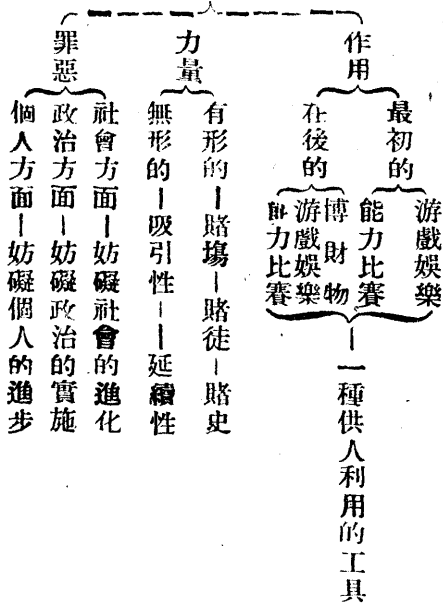 作用
最初的
游戲娛樂
能力比賽
在後的
博財物
游戲娛樂
能力比賽
一種供人利用的工具
力量
有形的－賭場－賭徒－賭史
無形的－吸引性－－延續性
罪惡
社會方面－妨礙社會的進化
政治方面－妨礙政治的實施
個人方面－妨礙個人的進步